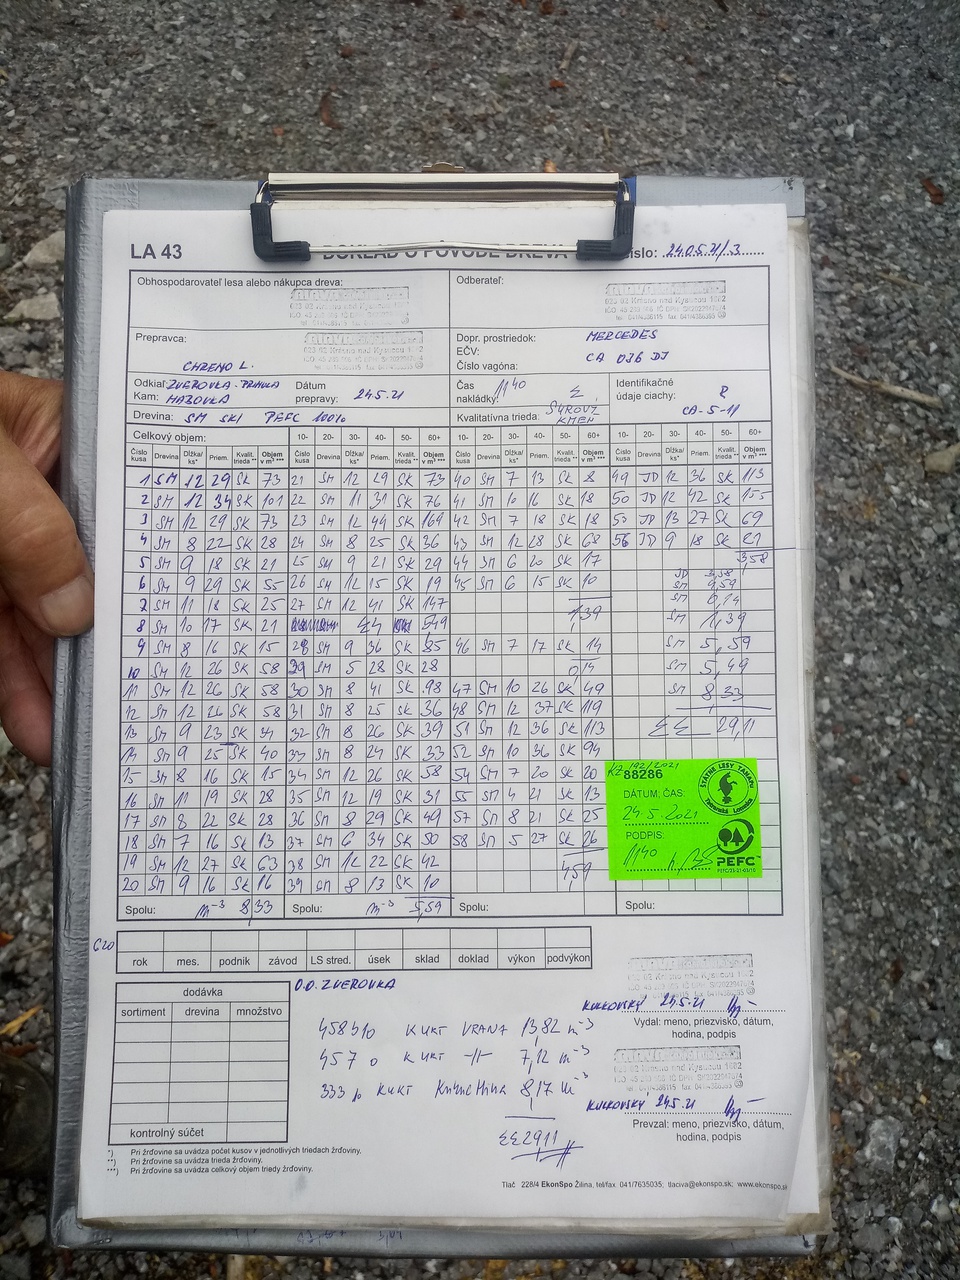 LA 43
DOKLAD O PÔVODE DREVA
íslo: 24.05.21/3
Obhospodarovateľ lesa alebo nákupca dreva:
Odberateľ:
023 02 Krásno nad Kysucou 1602
Prepravca:
CHRENO L.
Dopr. prostriedok: MERCEDES
EČV: CA 036 DJ
Číslo vagóna:
Odkiaľ: ZVEROVKA-PRIHULA
Kam: HABOVKA
Dátum prepravy: 24.5.21
Čas nakládky: 1140
Identifikačné údaje ciachy: 8
CA-5-11
Drevina: SM SK1 PEFC 100%
Kvalitatívna trieda: SUROVÝ KMEŇ
Celkový objem:
10- 20- 30- 40- 50- 60+ 10- 20- 30- 40- 50- 60+ 10- 20- 30- 40- 50- 60+
Číslo kusa Drevina Dĺžka/ ks* Priem. Kvalit. trieda ** Objem v m³ ***
1 SM 12 29 SK 73 21 SM 12 29 SK 73 40 SM 7 13 SK 8 49 JD 12 36 SK 113
2 SM 12 34 SK 101 22 SM 11 31 SK 76 41 SM 10 16 SK 18 50 JD 12 42 SK 155
3 SM 12 29 SK 73 23 SM 12 44 SK 169 42 SM 7 18 SK 18 53 JD 13 27 SK 69
4 SM 8 22 SK 28 24 SM 8 25 SK 36 43 SM 12 28 SK 68 56 JD 9 18 SK 21
5 SM 9 18 SK 21 25 SM 9 21 SK 29 44 SM 6 20 SK 17 3,58
6 SM 9 29 SK 55 26 SM 12 15 SK 19 45 SM 6 15 SK 10 JD 3,58
SM 4,59
7 SM 11 18 SK 25 27 SM 12 41 SK 147 SM 0,14
8 SM 10 17 SK 21 549 1,39 SM 1,39
9 SM 8 16 SK 15 28 SM 9 36 SK 85 46 SM 7 17 SK 14 SM 5,59
10 SM 12 26 SK 58 29 SM 5 28 SK 28 0,14 SM 5,49
11 SM 12 26 SK 58 30 SM 8 41 SK 98 47 SM 10 26 SK 49 SM 8,33
12 SM 12 26 SK 58 31 SM 8 25 SK 36 48 SM 12 37 SK 119
13 SM 9 23 SK 34 32 SM 8 26 SK 39 51 SM 12 36 SK 113 ΣΣ 29,11
14 SM 9 25 SK 40 33 SM 8 24 SK 33 52 SM 10 36 SK 94
15 SM 8 16 SK 15 34 SM 12 26 SK 58 54 SM 7 20 SK 20
16 SM 11 19 SK 28 35 SM 12 19 SK 31 55 SM 4 21 SK 13
17 SM 8 22 SK 28 36 SM 8 29 SK 49 57 SM 8 21 SK 25
18 SM 7 16 SK 13 37 SM 6 34 SK 50 58 SM 5 27 SK 26
19 SM 12 27 SK 63 38 SM 12 22 SK 42 4,59
20 SM 9 16 SK 16 39 SM 8 13 SK 10
Spolu: m-3 8,33 Spolu: m-3 5,59 Spolu: Spolu:
KZ 192/2021
88286
DÁTUM; ČAS:
24.5.2021
PODPIS:
1140
ŠTÁTNE LESY TANAPu
Tatranská Lomnica
PEFC
G20
rok mes. podnik závod LS stred. úsek sklad doklad výkon podvýkon
dodávka
sortiment drevina množstvo
kontrolný súčet
O.O. ZVEROVKA
333
ΣΣ 29,11
KULKOVSKÝ 24.5.21
Vydal: meno, priezvisko, dátum, hodina, podpis
KULKOVSKÝ 24.5.21
Prevzal: meno, priezvisko, dátum, hodina, podpis
*) Pri žrďovine sa uvádza počet kusov v jednotlivých triedach žrďoviny.
**) Pri žrďovine sa uvádza trieda žrďoviny.
***) Pri žrďovine sa uvádza celkový objem triedy žrďoviny.
Tlač 228/4 EkonSpo Žilina, tel/fax 041/7635035; tlaciva@ekonspo.sk; www.ekonspo.sk